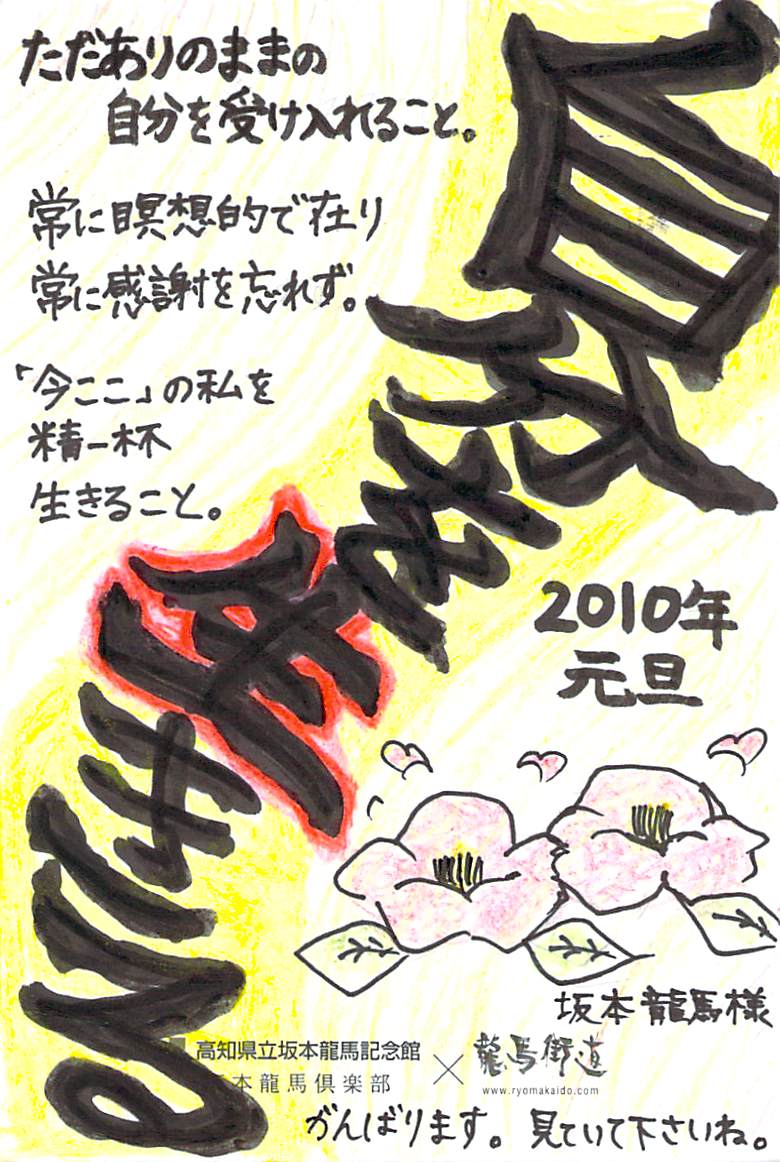 ただありのままの
自分を受け入れること。
常に瞑想的で在り
常に感謝を忘れず。
「今ここ」の私を
精一杯
生きること。
2010年
元旦
坂本龍馬様
高知県立坂本龍馬記念館
本龍馬倶楽部
×
龍馬街道
www.ryomakaido.com
がんばります。見ていて下さいね。